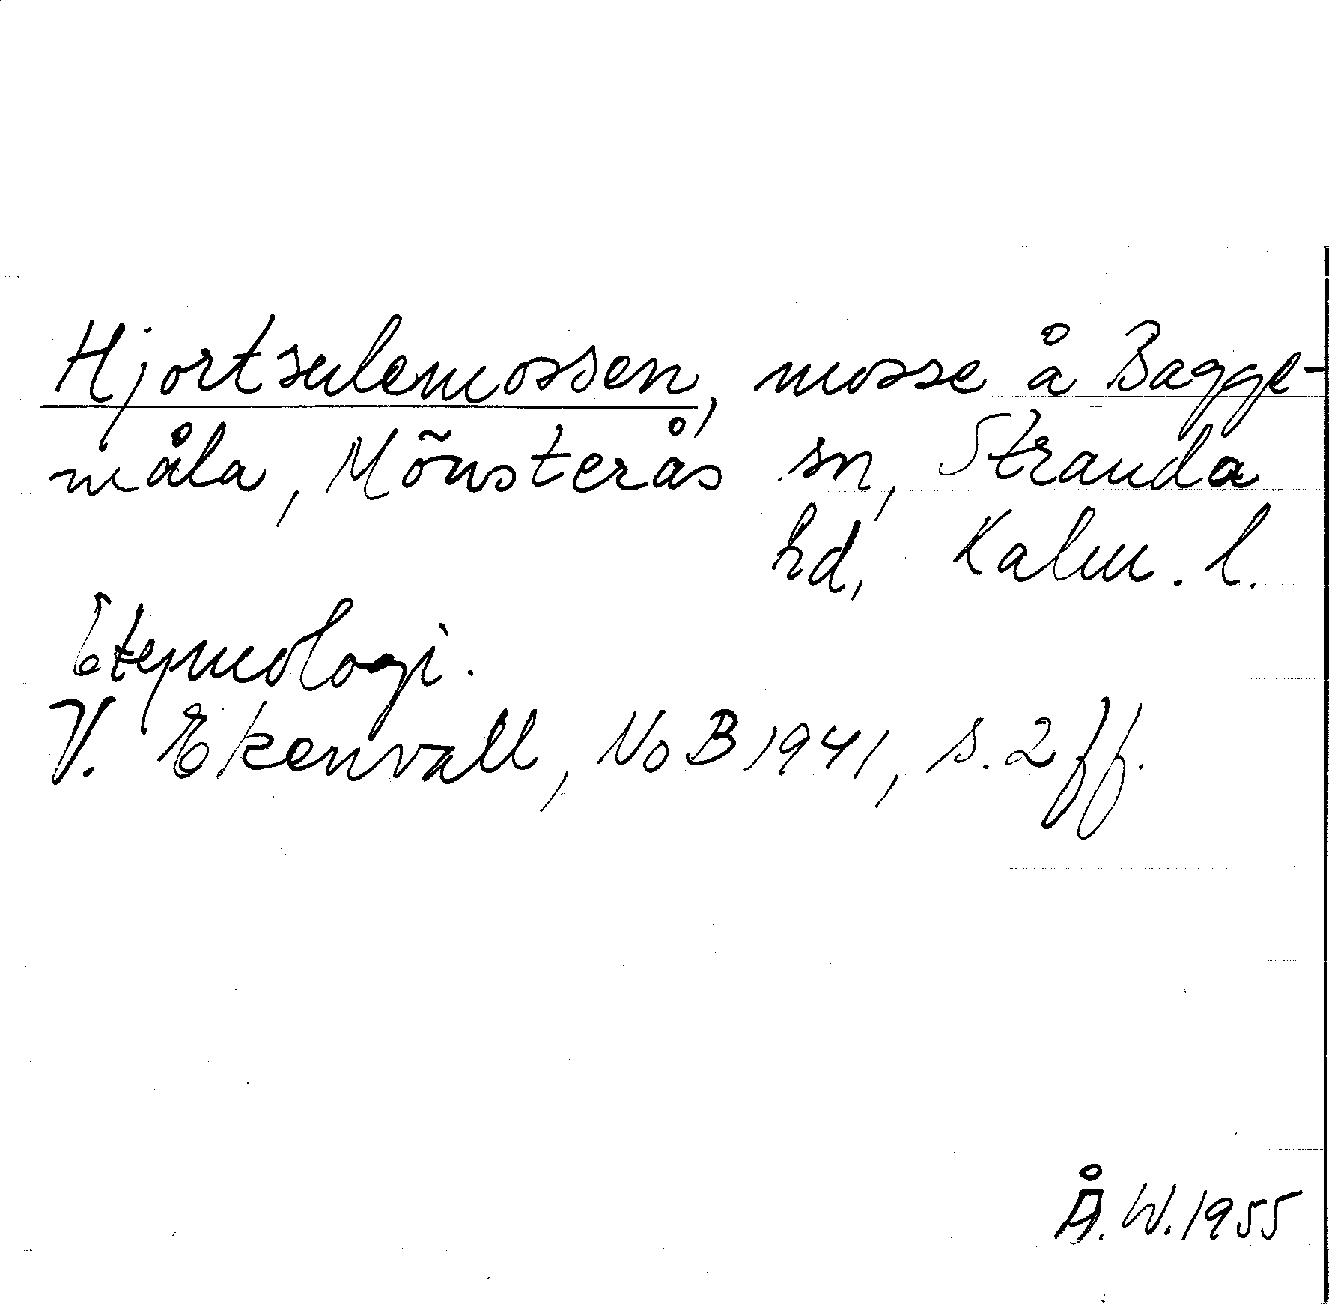 Hjortsulemossen, mosse å Bagge-
måla, Mönsterås sn, Stranda
hd, Kalm. l.
Etymologi.
V. Ekenvall, NoB 1941, s. 2 ff.
Å. W. 1955